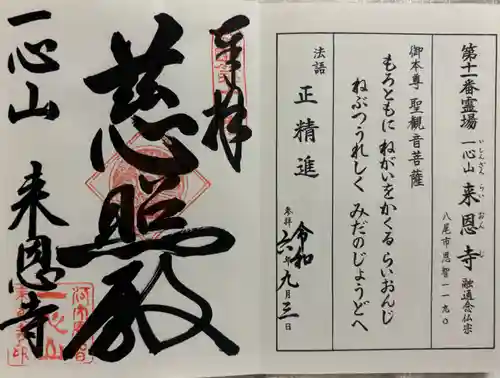 第十一番霊場 一心山 来恩寺 融通念仏宗
いしんざん らいおんじ
八尾市恩智一一九〇
御本尊 聖観音菩薩
もろともに ねがいをかくる らいおんじ
ねぶつうれしく みだのじょうどへ
法語 正精進
参拝 令和六年九月三日
奉拝
慈照殿
一心山 来恩寺